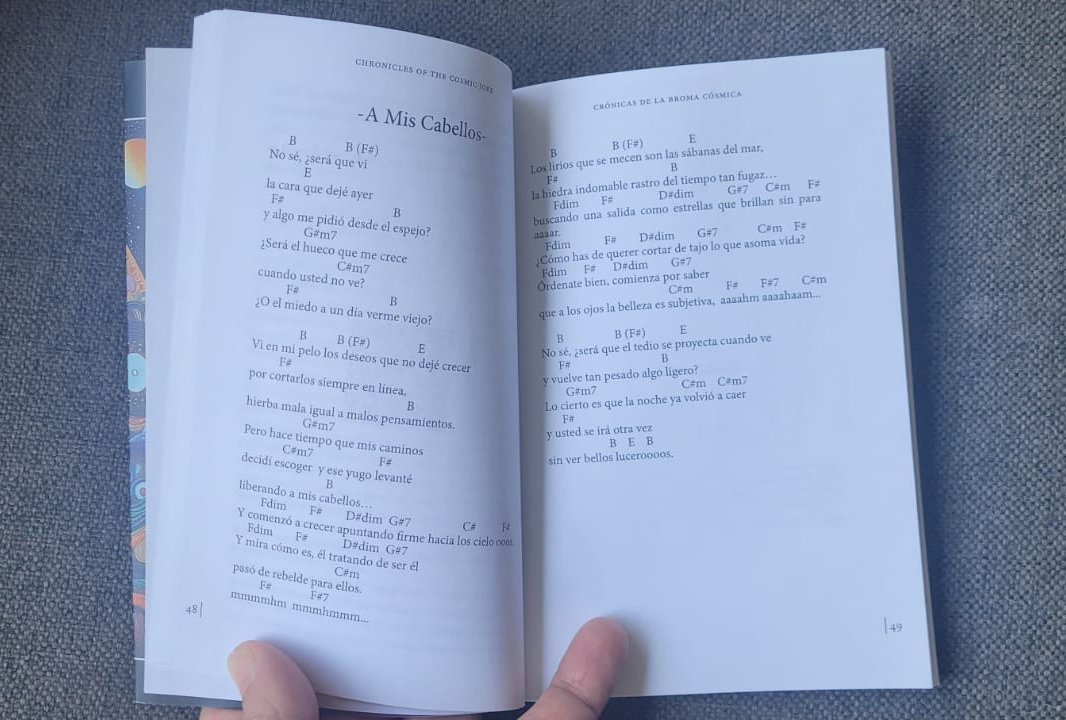 CHRONICLES OF THE COSMIC JOKE
-A Mis Cabellos-
B B (F#)
No sé, ¿será que vi
E
la cara que dejé ayer
F# B
y algo me pidió desde el espejo?
G#m7
¿Será el hueco que me crece
C#m7
cuando usted no ve?
F# B
¿O el miedo a un día verme viejo?
B B (F#) E
Vi en mi pelo los deseos que no dejé crecer
F#
por cortarlos siempre en línea,
B
hierba mala igual a malos pensamientos.
G#m7
Pero hace tiempo que mis caminos
C#m7 F#
decidí escoger y ese yugo levanté
B
liberando a mis cabellos...
Fdim F# D#dim G#7 C# F#
Y comenzó a crecer apuntando firme hacía los cielo ooos
Fdim F# D#dim G#7
Y mira cómo es, él tratando de ser él
C#m
pasó de rebelde para ellos.
F# F#7
mmmmhm mmmhmmm...
48|
CRÓNICAS DE LA BROMA CÓSMICA
B B (F#) E
Los lirios que se mecen son las sábanas del mar,
F# B
la hiedra indomable rastro del tiempo tan fugaz...
Fdim F# D#dim G#7 C#m F#
buscando una salida como estrellas que brillan sin para
aaaar.
Fdim F# D#dim G#7 C#m F#
¿Cómo has de querer cortar de tajo lo que asoma vida?
Fdim F# D#dim G#7
Órdenate bien, comienza por saber
C#m F# F#7 C#m
que a los ojos la belleza es subjetiva, aaaahm aaaahaam...
B B (F#) E
No sé, ¿será que el tedio se proyecta cuando ve
F# B
y vuelve tan pesado algo ligero?
G#m7 C#m C#m7
Lo cierto es que la noche ya volvió a caer
F#
y usted se irá otra vez
B E B
sin ver bellos luceroooos.
|49